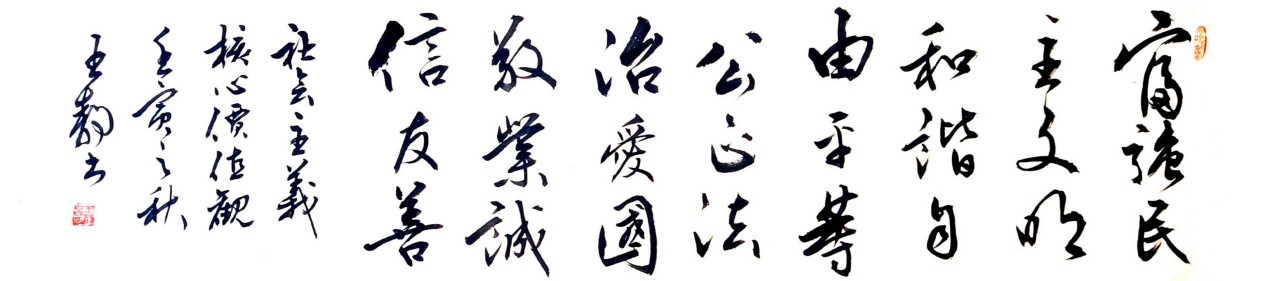 富強民
主文明
和諧自
由平等
公正法
治愛國
敬業誠
信友善
社会主義
核心價值觀
壬寅之秋
王静书